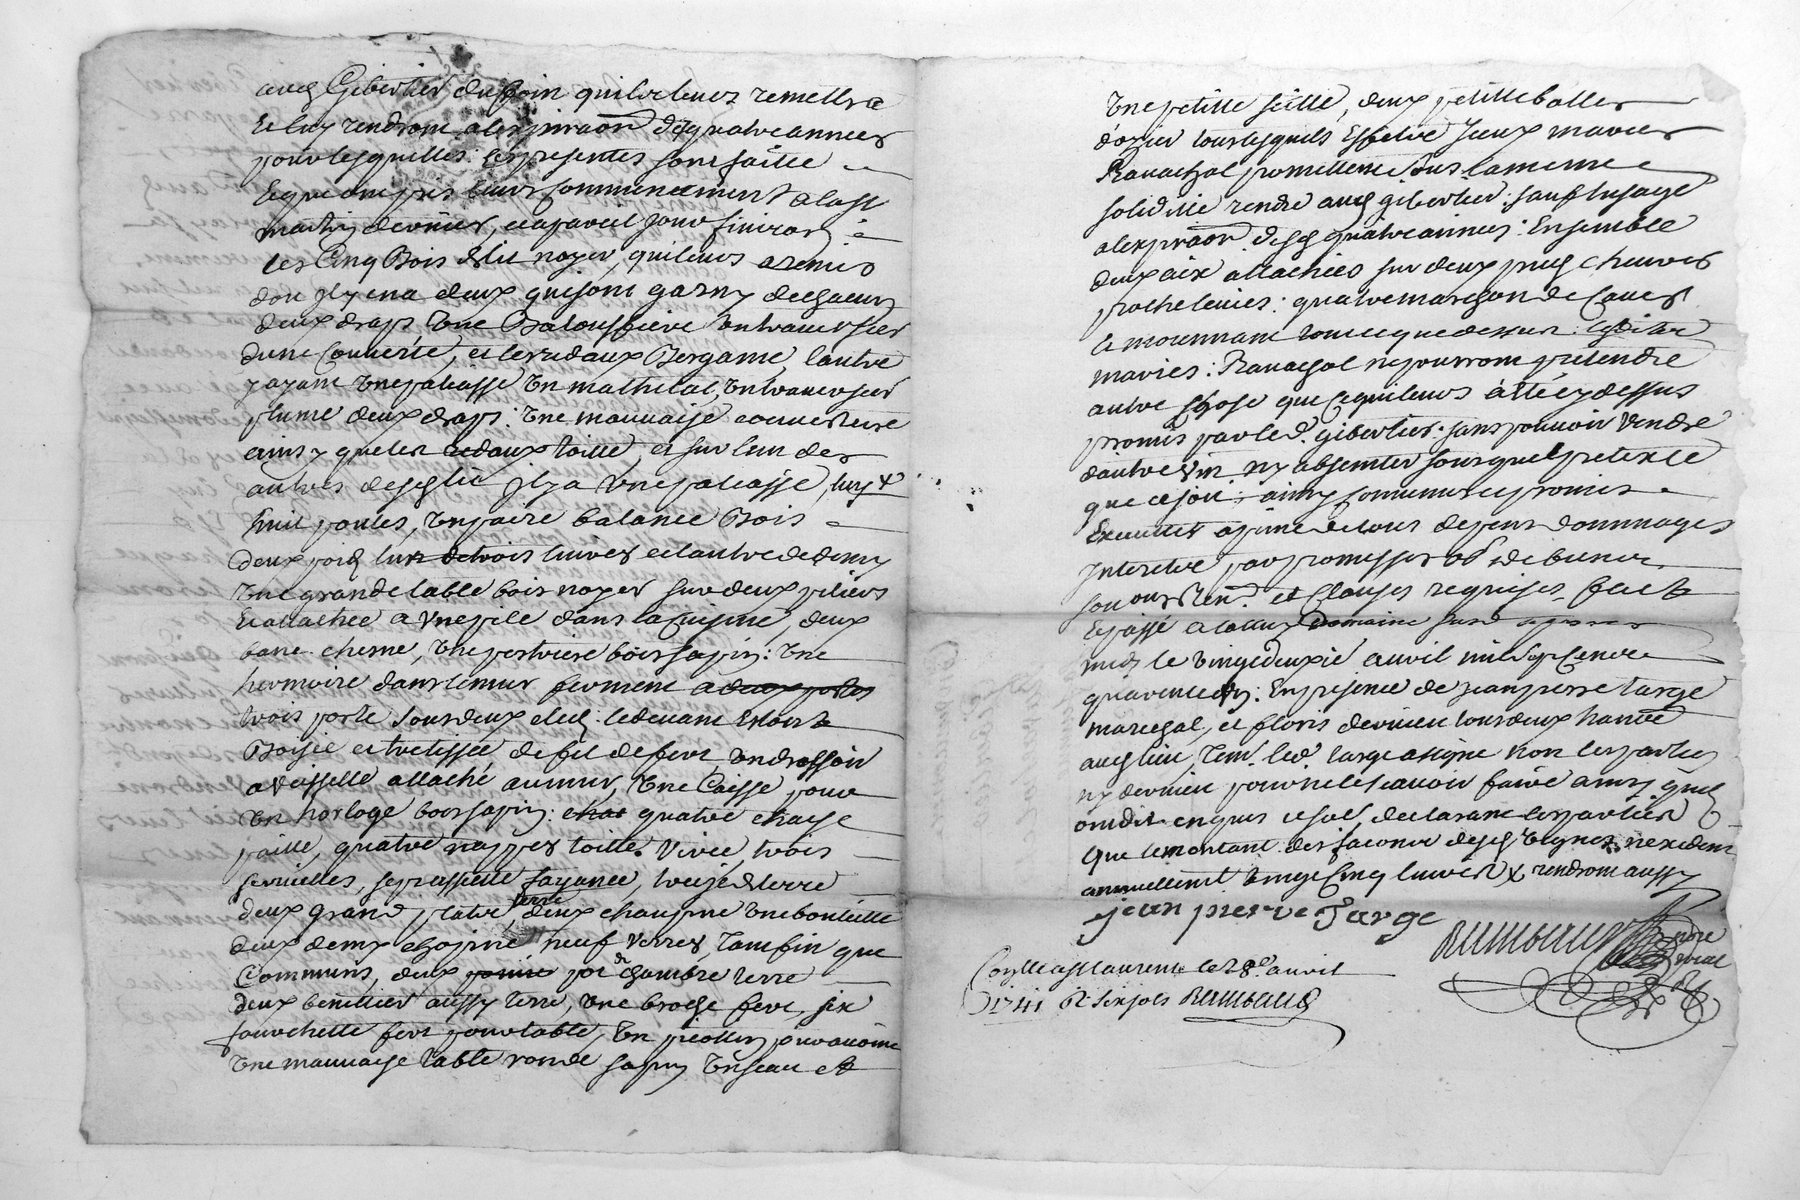 audt Gibertier du foin quil leurs remettra
Et luy rendront a lexpiraon desd quatre années
pour lesquelles les presentes sont faitte
Et que ont pris leurs commencement a la st
martin dernier, et a pareil jour finiront
les Cinq Bois de lit noyer, quil leurs a remis
don jl y en a deux qui sont garny de chacun
deux draps Une Balouffiere Un traversier
dune Couverte, et les ridaux Bergame, lautre
y ayant Une paliasse Un mathelat, Un traversier
plume deux draps: Une mauvaise couverture
ainsy que les redaux toille, et sur lun des
autres desd lit jl y a Une paliasse,
huit poules, Un paire balance Bois
deux poid lun de trois livres et lautre de demy
Une grande table bois noyer sur deux piliers
Et attachée a Une pile dans la Cuisine, deux
banc chesne, Une pestriere bois sapin: Une
hermoire dans le mur ferment a deux portes
trois porte sous deux clefs: le devant Et
Boisée et tretissée de fil de fert, Un dressoir
a Vaisselle attaché au mur, Une Caisse pour
Un horloge bois sapin: chai quatre chaise
paille, quatre nappes toille Vivée, trois
serviettes, sept assiette fayance, treize de terre
deux grand platre, terre deux chaupine Une bouteille
deux demy chopine neuf verres tant fin que
Communs, deux pot de chambre terre
deux benittier aussy terre, Une broche fert, six
fourchette fert pour table, Un picottin pour avoine
Une mauvaise table ronde sapin Un seau et
Une petitte seille, deux petitte balles
dozier tous lesquels Effectre jceux mariés
Ravachol promettent sous la meme
solidité rendre audt gibertier: sauf lusage
a lexpiraon desd quatre années: Ensemble
deux aix attachées sur deux
quatre marchon de Caves
le moyennant tout ce que dessus: lesditte
mariés: Ravachol ne pourront pretendre
autre chose que ce quil leurs a été cy dessus
promis par led. gibertier: sans pouvoir Vendre
dautre Vin ny absenter sous quel pretexte
que ce soit: ainsy Convenu et promis
Executter a peine de tous depens dommages
Interetre par promesses obt de biens
soumissⁿ Renⁿ. et Clauses requises, fait
Et passé a domaine
midy le vingt deuxie avril mil sept Cent
quarente En presence de jean pierre large
marechal, et floris dervieu tous deux
audt lieu, tem. led. large a signé non les parties
ny dervieu pour ne le scavoir faire ainsy quils
ont dit enquis et sol, declarant les parties
que le montant des facons desd vignes nexedent
annuellement vingt Cinq livres et rendront aussy
jean pierre Large
Rambaud nore
Conlle a st laurent le 28e. avril
1741 R six sols Rambaud